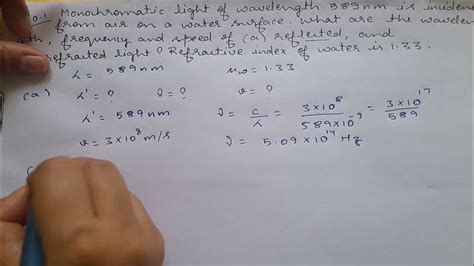 10.1 Monochromatic light of wavelength 589nm is incident
from air on a water surface. What are the wavelen
gth, frequency and speed of (a) reflected, and
refracted light? Refractive index of water is 1.33.
λ = 589nm μω = 1.33
(a) λ' = ? ν = ? v = ?
λ' = 589nm ν = c/λ = 3×10⁸/589×10⁻⁹ = 3×10¹⁷/589
v = 3×10⁸ m/s ν = 5.09×10¹⁴ Hz